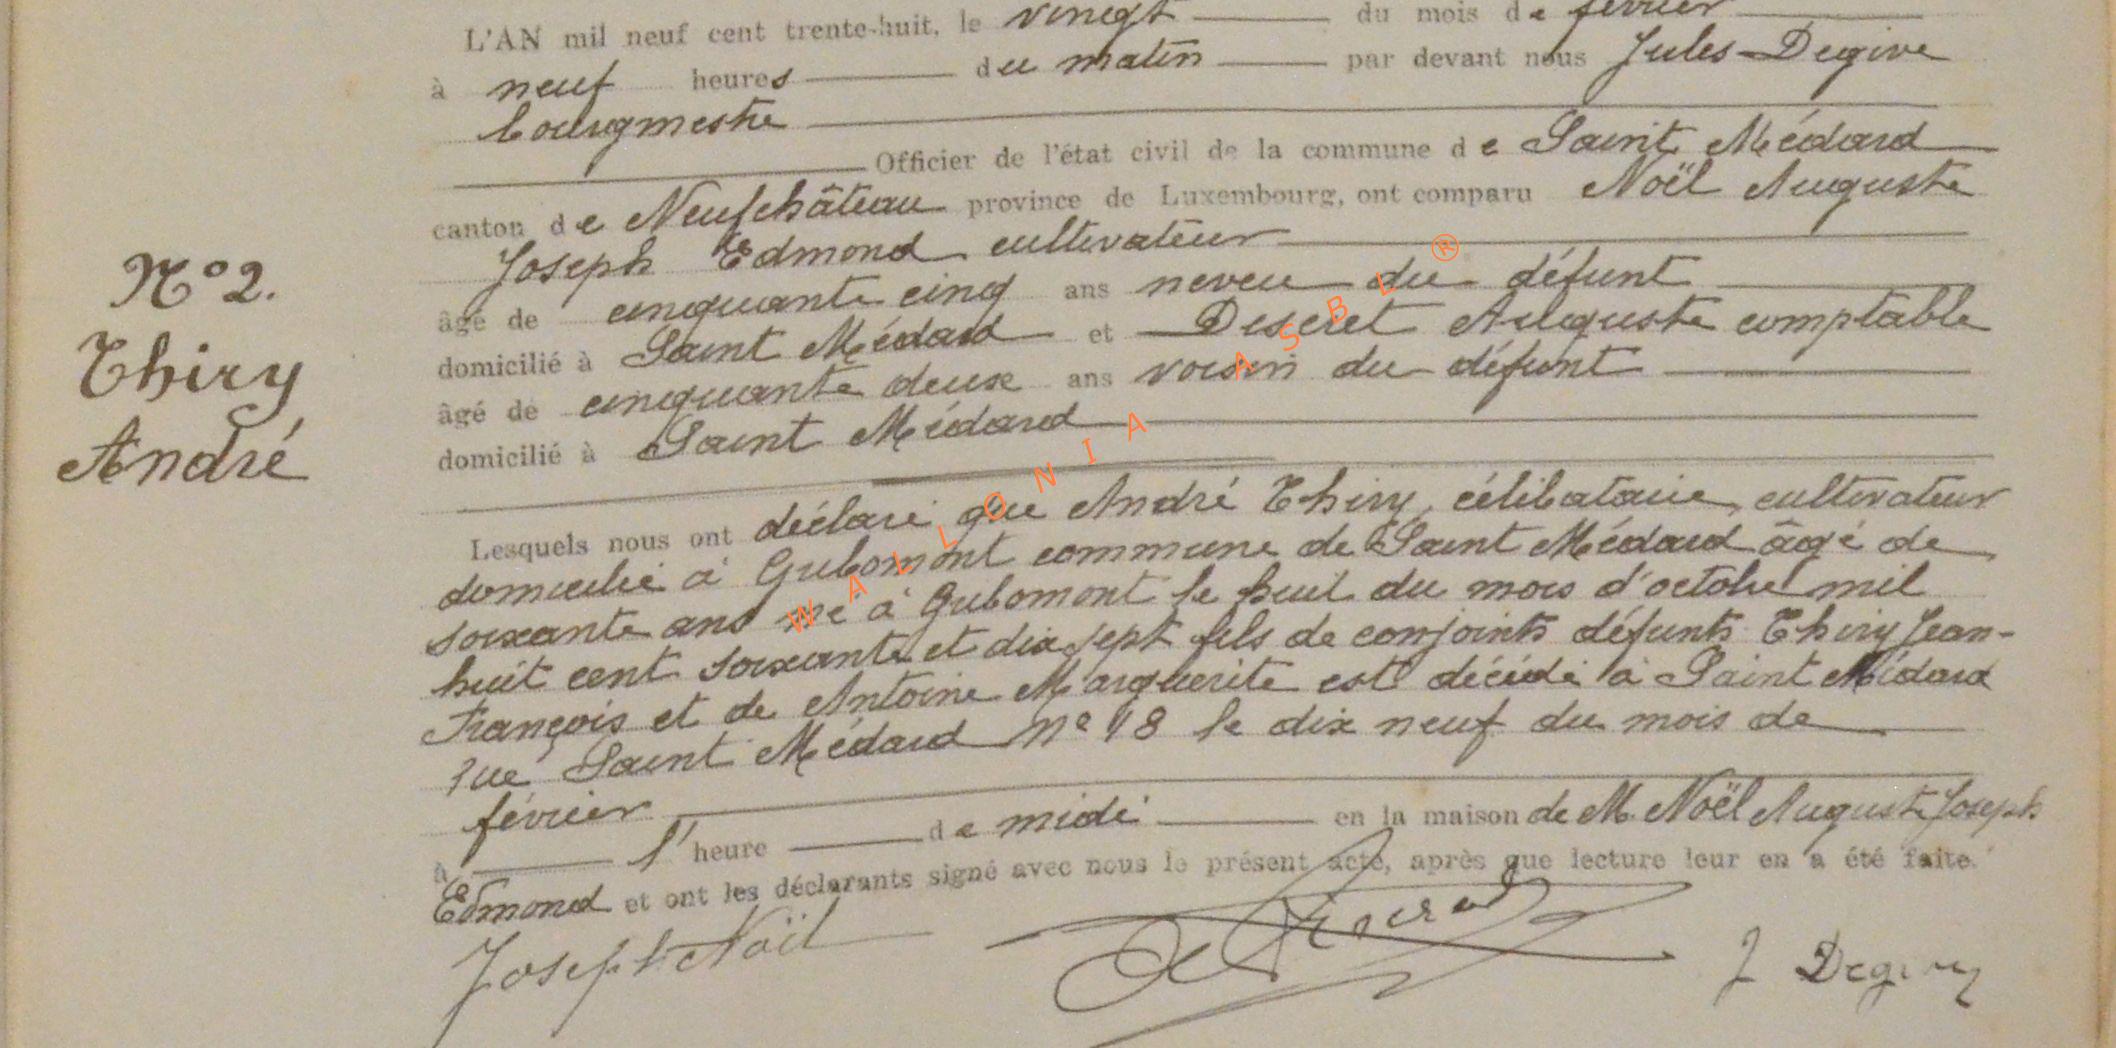 L'AN mil neuf cent trente-huit, le vingt du mois de février
à neuf heures du matin par devant nous Jules Degive
bourgmestre
Officier de l'état civil de la commune de Saint Médard
canton de Neufchâteau province de Luxembourg, ont comparu Noël Auguste
Joseph Edmond cultivateur
âgé de cinquante cinq ans neveu du défunt
domicilié à Saint Médard et Auguste comptable
âgé de cinquante deux ans voisin du défunt
domicilié à Saint Médard
N° 2.
Thiry
André
Lesquels nous ont déclaré que André Thiry, célibataire, cultivateur
domicilié à Gribomont commune de Saint Médard âgé de
soixante ans né à Gribomont le huit du mois d'octobre mil
huit cent soixante et dix sept fils de conjoints défunts Thiry Jean-
François et de Antoine Marguerite est décédé à Saint Médard
rue Saint Médard N° 18 le dix neuf du mois de
février
à l'heure de midi en la maison de M. Noël Auguste Joseph
Edmond et ont les déclarants signé avec nous le présent acte, après que lecture leur en a été faite.
Joseph Noël
J Degive
WALLONIA ASBL ®